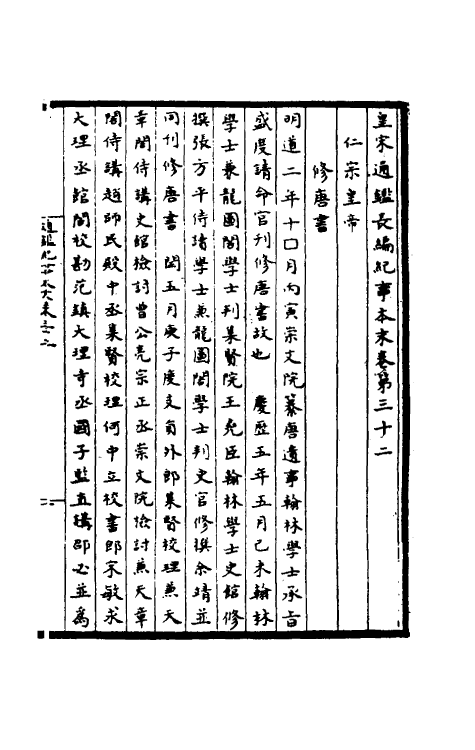 皇宋通鑑長編紀事本末卷第三十二
仁宗皇帝
修唐書
明道二年十□月丙寅崇文院纂唐遺事翰林學士承旨
盛度請命官刊修唐書故也　慶歷五年五月己未翰林
學士兼龍圖閣學士判集賢院王堯臣翰林學士史館修
撰張方平侍讀學士兼龍圖閣學士判史官修撰余靖並
同刊修唐書　閏五月庚子度支員外郎集賢校理兼天
章閣侍講史館檢討曾公亮宗正丞崇文院檢討兼天章
閣侍講趙師民殿中丞集賢校理何中立校書郎宋敏求
大理丞館閣校勘范鎮大理寺丞國子監直講邵必並為
通鑑紀事本末卷三十二